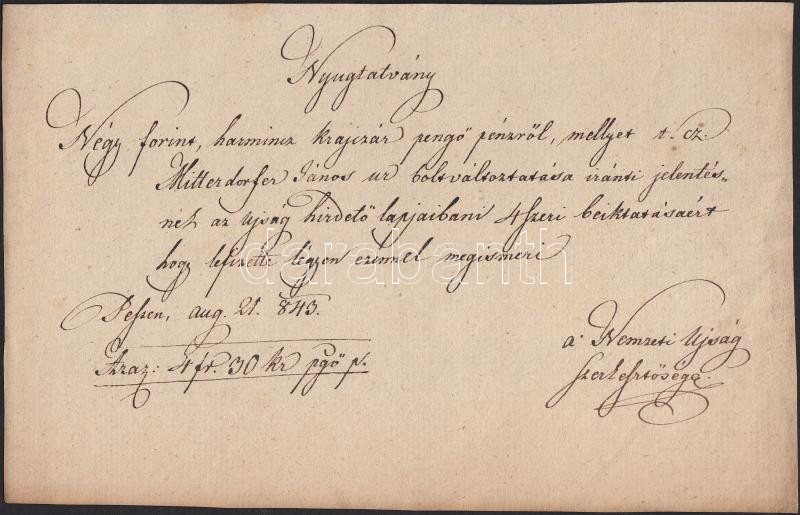 Nyugtatvány
Négy forint, harmincz krajczár pengö pénzről, mellyet t. cz.
Mitterdorfer János ur boltváltoztatása iránti jelentés-
nek az Ujság hirdető lapjaibani 4szeri beiktatásaért
hogy lefizette légyen ezennel megismeri
darabanth
Pesten, aug. 21. 843.
Azaz: 4 fr. 30 kr pgö p.
a' Nemzeti Ujság
szerkesztősége.